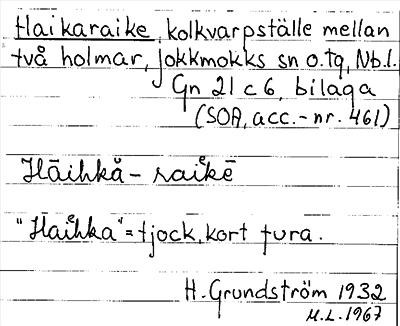 Haikaraike, kolkvarpställe mellan
två holmar, Jokkmokks sn o. tg, Nb. l.
Gn 21 c 6, bilaga
(SOA, acc.-nr. 461)
Hāihkå-raikē
"Hāihka" = tjock, kort fura.
H. Grundström 1932
M.L. 1967